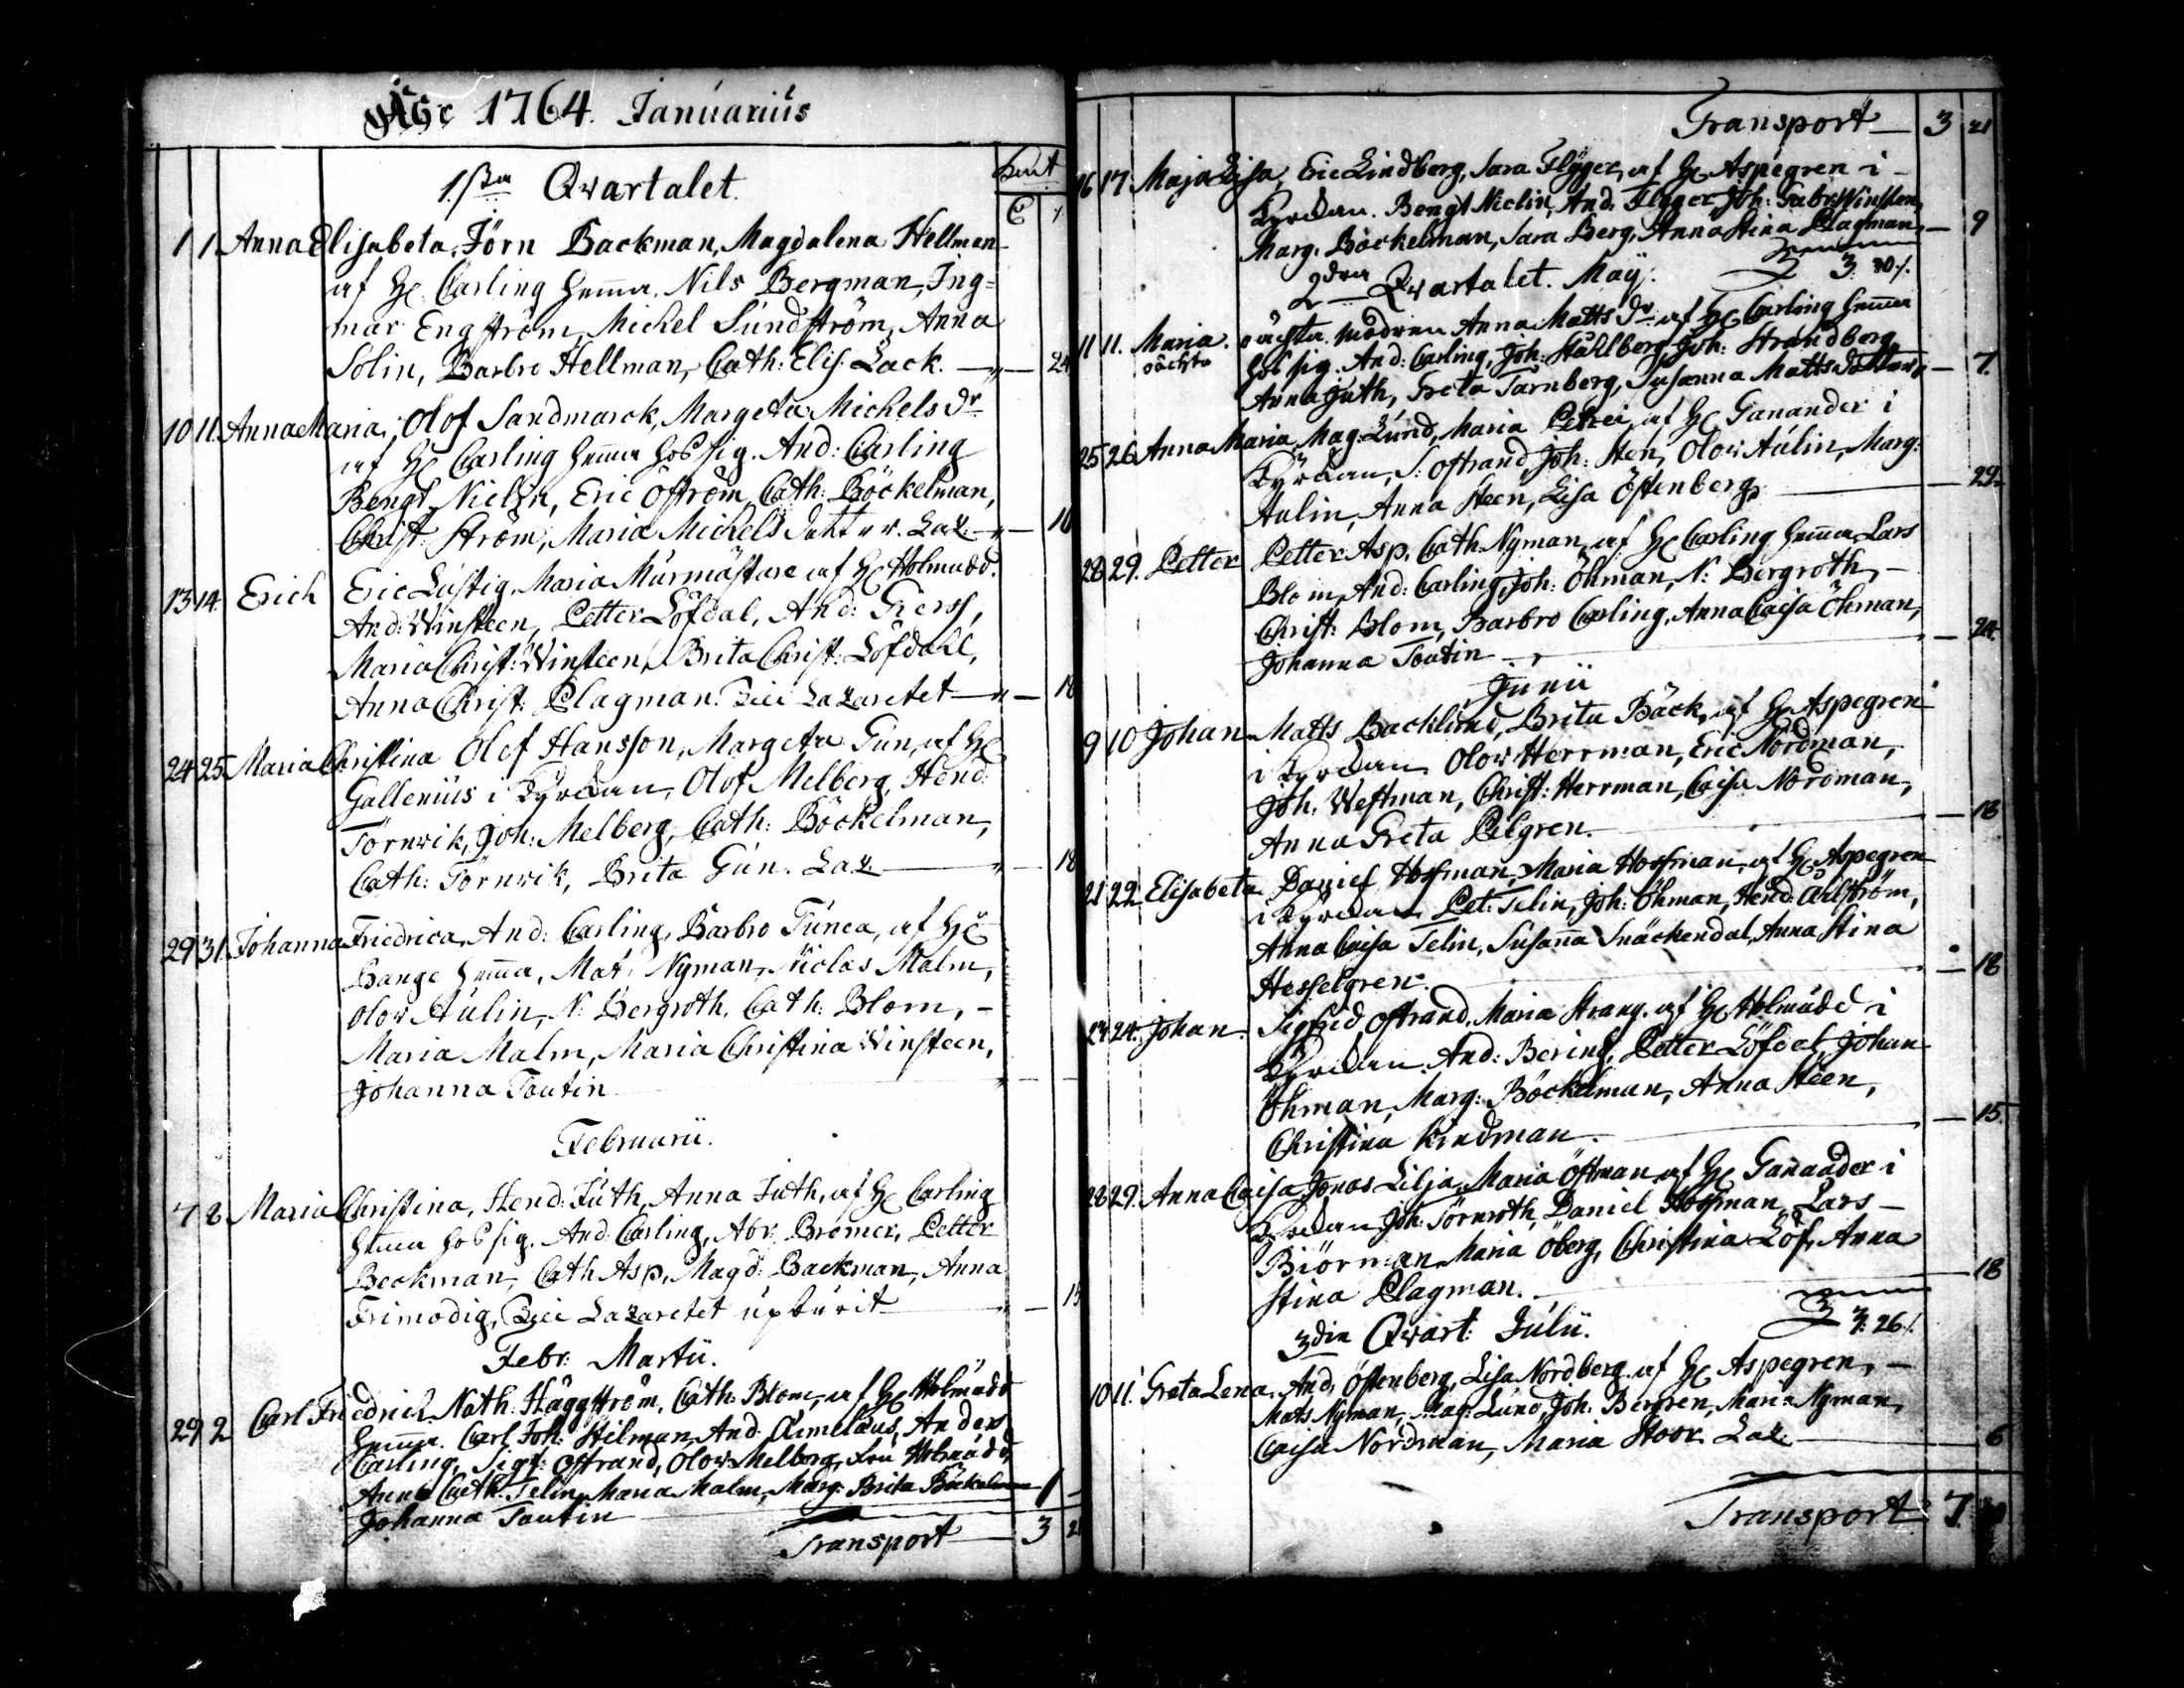 1764. Januarius
1sta Qvartalet.
1 1 Anna Elisabeta, Jörn Backman, Magdalena Hellman
af H: Carling hemma. Nils Bergman, Ing=
mar Engström, Michel Sundström, Anna
Solin, Barbro Hellman, Cath: Elis: Lack. — 24
10 11. Anna Maria, Olof Sandmarck, Margeta Michels dr
af H: Carling hemma hos sig. And: Carling
Bengt Nielin, Eric Öström, Cath: Böckelman,
Christ: Ström, Maria Michels dotter. Laz. —
13 14. Erich Eric Lustig, Maria Murmästare af H: Holmudd.
And: Winsteen, Petter Löfdal, And: Gerss,
Maria Christ: Winsteen, Brita Christ: Löfdahl,
Anna Christ: Plagman. Lazaretet — 18
24 25 Maria Christina Olof Hansson, Margeta Gun, af H:
Gallenius i Kyrckan, Olof Melberg, Hend:
Törnwik, Joh: Melberg, Cath: Böckelman,
Cath: Törnwik, Brita Gun. Laz. — 18
29 31. Johanna Friedrica, And: Carling, Barbro Tunea, af H:
Bange hemma, Mat: Nyman, Niclas Malm,
Olov Aulin, N: Bergroth, Cath: Blom, –
Maria Malm, Maria Christina Winsteen,
Johanna Toutin —
Februarii.
7 8 Maria Christina, Hend: Juth, Anna Juth, af H: Carling
hemma hos sig. And: Carling, Abr: Bremer, Petter
Beckman, Cath Asp, Magd: Backman, Anna
Frimodig, Lazaretet — 15
Febr: Martii.
29 2 Carl Friedrich Nath: Häggström, Cath: Blom, af H: Holmudd
hemma. Carl Joh: Stilman, And: Aemelæus, Anders
Carling, Sigf: Ostrand, Olov Melberg, Fru Holmudd,
Anna Cath: Telin, Maria Malm, Marg: Brita Böckelman 1 –
Johanna Toutin
Transport — 3 21
Transport — 3 21
16 17 Maja Lisa, Eric Lindberg, Sara Flyger, af H: Aspegren i –
Kyrckan. Bengt Nielin, And: Flyger, Joh: Gabr: Winsten,
Marg: Böckelman, Sara Berg, Anna Stina Plagman, — 9
2dra Qvartalet. Maÿ. 3: 30.
11 11. Maria oächta. modren Anna Matts dr af H: Carling hemma
oächta hos sig. And: Carling, Joh: Ståhlberg, Joh: Strandberg,
Anna Juth, Greta Tarnberg, Susanna Matts dotter — 7.
25 26 Anna Maria Mag: Lund, Maria Petrei, af H: Ganander i
Kyrckan, S: Ostrand, Joh: Sten, Olov Aulin, Marg:
Aulin, Anna Steen, Lisa Östenberg. — 29.
28 29. Petter Petter Asp, Cath: Nyman, af H: Carling hemma, Lars
Blom, And: Carling, Joh: Öhman, N: Bergroth, –
Christ: Blom, Barbro Carling, Anna Caisa Öhman,
Johanna Toutin — 24.
Junii
9 10 Johan Matts Backlund, Brita Bäck, af H: Aspegren
i Kyrckan, Olov Herrman, Eric Nordman,
Joh: Westman, Christ: Herrman, Caisa Nordman,
Anna Greta Pelgren. — 18
21 22 Elisabeta Daniel Hofman, Maria Hofman, af H: Aspegren
i Kyrckan Pet: Telin, Joh: Öhman, Hend: Ahlström,
Anna Caisa Telin, Susanna Snäckendal, Anna Stina
Hesselgren. — 18
24 24. Johan. Sigfrid Ostrand, Maria Strang. af H: Holmudd i
Kyrckan. And: Bering, Petter Löfdal, Johan
Öhman, Marg: Böckelman, Anna Steen,
Christina Kindman. — 15.
28 29. Anna Caisa Jonas Lilja, Maria Östman, af H: Ganander i
Kyrckan Joh: Törnroth, Daniel Hofman, Lars –
Biörman, Maria Öberg, Christina Löf, Anna
Stina Plagman. — 18
3die Qvart: Julii. 3: 26.
10 11. Greta Lena, And: Östenberg, Lisa Nordberg, af H: Aspegren, –
Mats Nyman, Mag: Lund, Joh: Bergren, Maria Nyman,
Caisa Nordman, Maria Stoor. Laz. — 6
Transport 7.